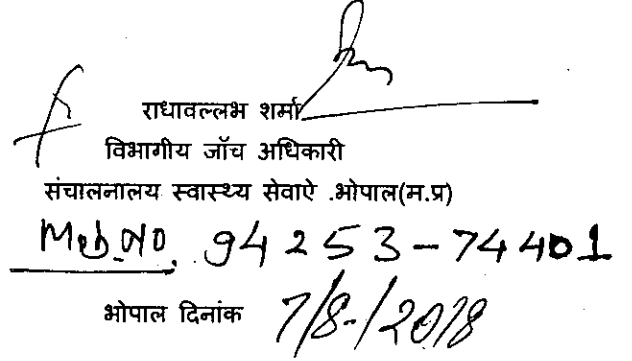 राधावल्लभ शर्मा
विभागीय जॉच अधिकारी
संचालनालय स्वास्थ्य सेवाऐ .भोपाल(म.प्र)
Mob.NO. 94253-74401
भोपाल दिनांक 7/8-/2018